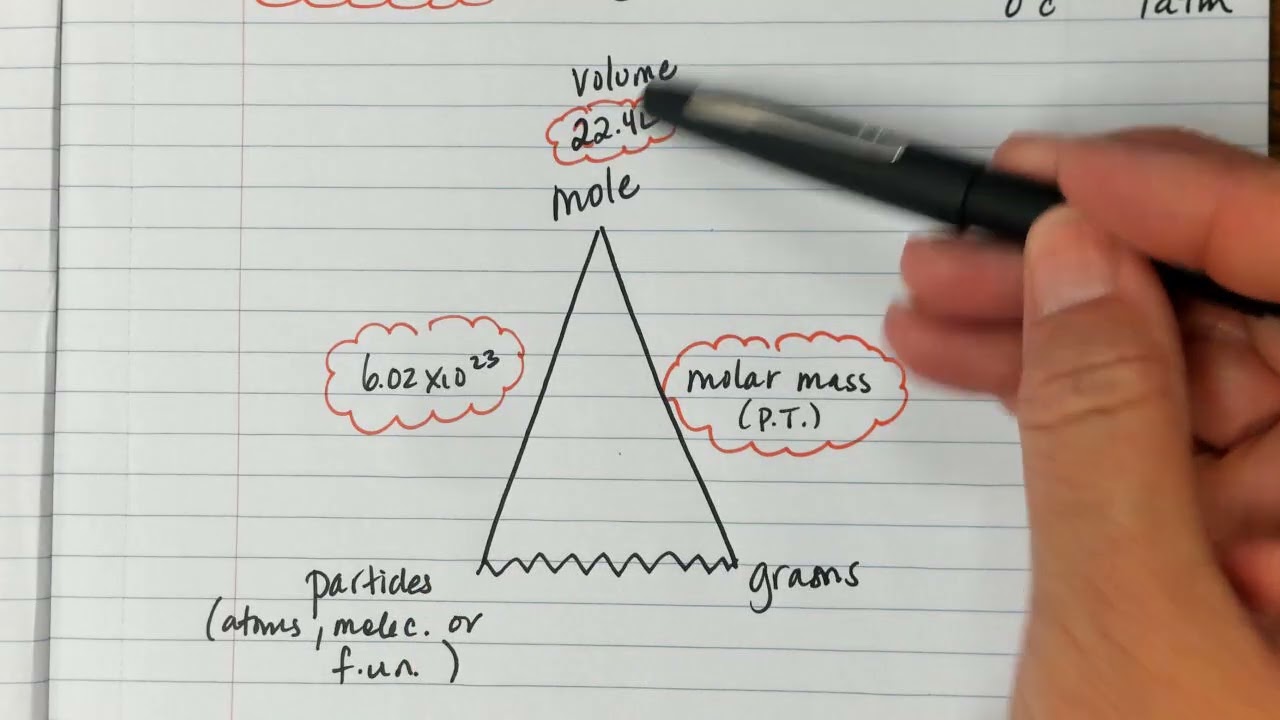 0°C 1atm
volume
22.4L
mole
6.02 x10²³
molar mass
(P.T.)
particles
grams
(atoms, molec. or
f.un.)